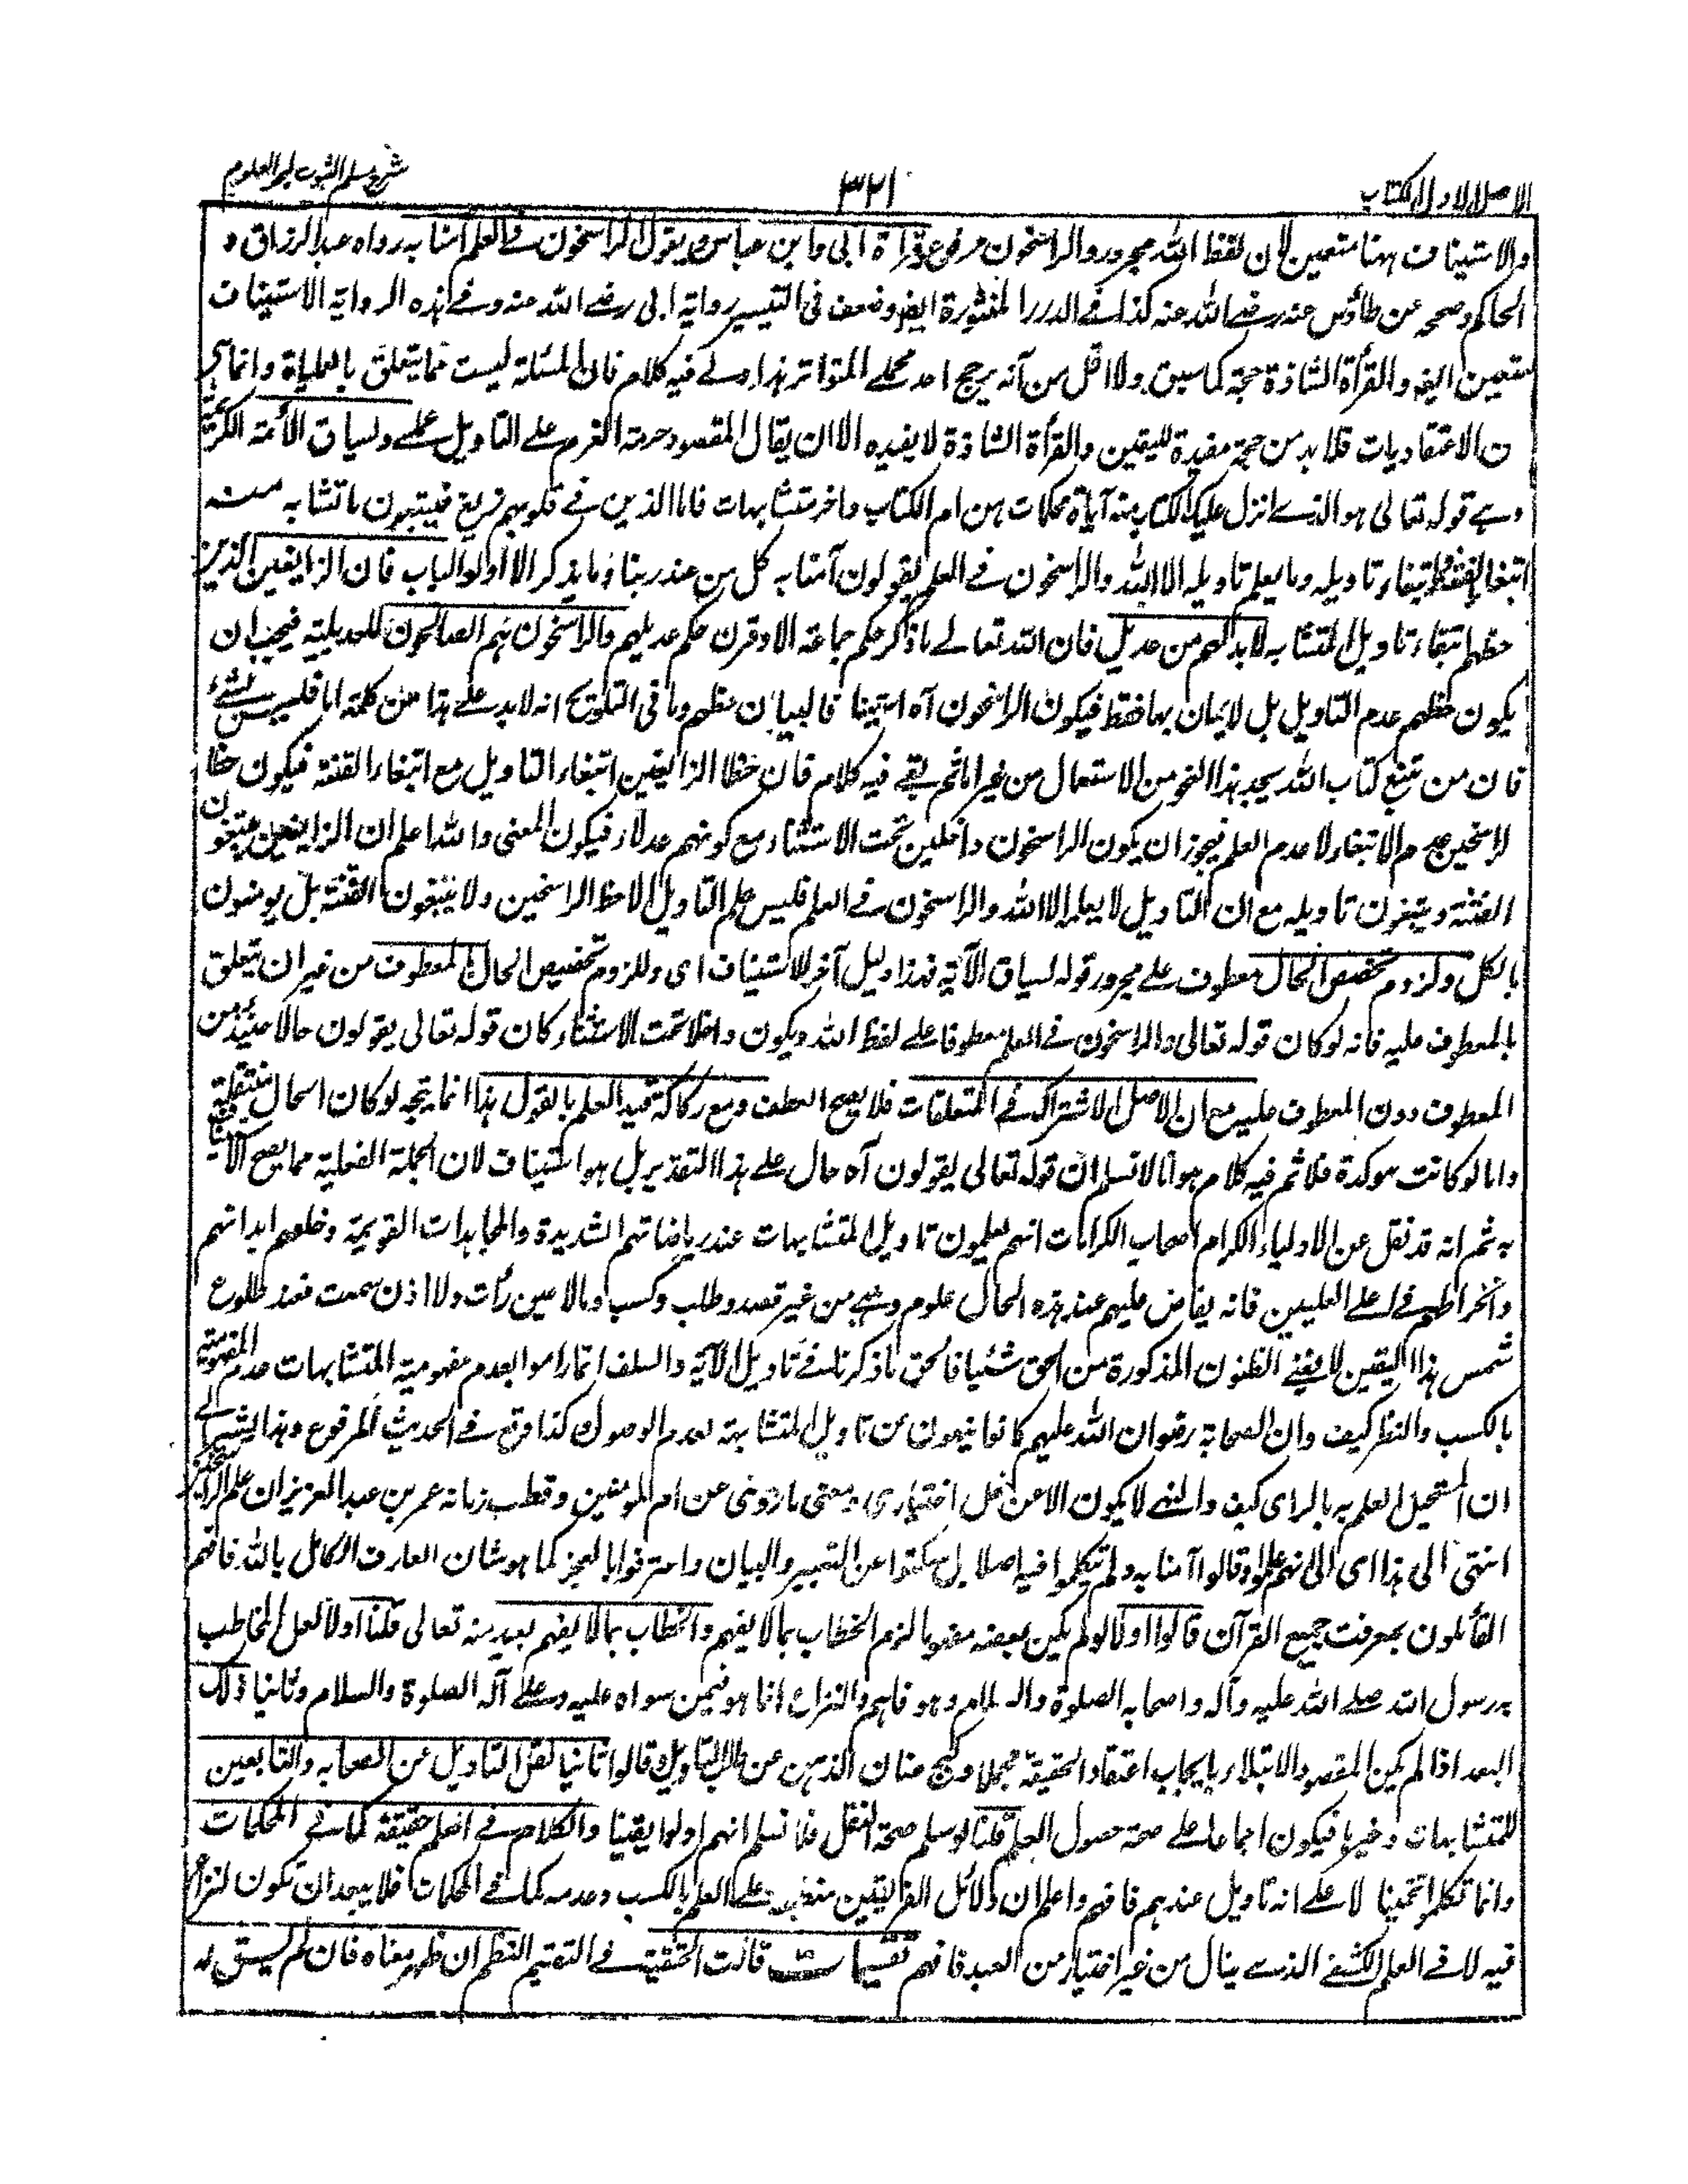 الاصل الاول الكتاب
٣٢١
شرح مسلم الثبوت لبحر العلوم
والاستيناف ههنا متعين لان لفظ الله مجرور والراسخون مرفوع وقراءة ابي وابن عباس ويقول الراسخون في العلم آمنا به رواه عبد الرزاق و
الحاكم وصححه عن طاؤس عنه رضي الله عنه كذا في الدرر المنثورة ايضا وضعف في التيسير رواية ابي رضي الله عنه وفي هذه الرواية الاستيناف
متعين ايضا والقرأة الشاذة حجة كما سبق ولا اقل من انه يرجح احد محملي المتواتر هذا ولي فيه كلام فان المسئلة ليست مما يتعلق بالعمليات وانما هي
من الاعتقاديات فلا بد من حجة مفيدة لليقين والقرأة الشاذة لا يفيده الا ان يقال المقصود حرمة العزم على التاويل عملي ولسياق الأئمة الكريمة
وهي قوله تعالى هو الذي انزل عليك الكتاب منه آيات محكمات هن ام الكتاب واخر متشابهات فاما الذين في قلوبهم زيغ فيتبعون ما تشابه منه
ابتغاء الفتنة وابتغاء تاويله وما يعلم تاويله الا الله والراسخون في العلم يقولون آمنا به كل من عند ربنا وما يذكر الا اولوا الباب فان الزايغين الذين
حظهم ابتغاء تاويل المتشابه لا بد لهم من عديل فان الله تعالى ما ذكر حكم جماعة الا وقرن حكم عديلهم والراسخون هم الصالحون للعديلية فيجب ان
يكون حظهم عدم التاويل بل لايمان بها فقط فيكون الراسخون آه استينافا لبيان حظهم وما في التلويح انه لا بد على هذا من كلمة اما فليس بشئ
فان من تتبع كتاب الله يجد هذا النحو من الاستعمال من غير اما ثم بقي فيه كلام فان حظ الزايغين ابتغاء التاويل مع ابتغاء الفتنة فيكون حظ
لراسخين عدم الابتغاء لا عدم العلم فيجوز ان يكون الراسخون داخلين تحت الاستثناء مع كونهم عدلاء فيكون المعنى والله اعلم ان الزايغين يبتغون
الفتنة ويبتغون تاويله مع ان التاويل لا يعلمه الا الله والراسخون في العلم فليس علم التاويل الا حظ الراسخين ولا يبتغون الفتنة بل يومنون
بالكل ولزوم تخصص الحال معطوف على مجرور قوله لسياق الآية فهذا دليل آخر للاستيناف اى وللزوم تخصيص الحال بالمعطوف من غير ان يتعلق
بالمعطوف عليه فانه لو كان قوله تعالى والراسخون في العلم معطوفا على لفظ الله ويكون داخلا تحت الاستثناء كان قوله تعالى يقولون حالا حينئذ من
المعطوف دون المعطوف عليه مع ان الاصل الاشتراك في المتعلقات فلا يصح العطف ومع ركاكة تقييد العلم بالقول هذا انما يتجه لو كان الحال منتقلة
واما لو كانت موكدة فلا ثم فيه كلام هو انا لا نسلم ان قوله تعالى يقولون آه حال على هذا التقدير بل هو استيناف لان الجملة الفعلية مما يصح الاستيناف
به ثم انه قد نقل عن الاولياء الكرام اصحاب الكرامات انهم يعلمون تاويل المتشابهات عند رياضاتهم الشديدة والمجاهدات القويمة وخلعهم ابدانهم
وانخراطهم في اعلى العليين فانه يفاض عليهم عند هذه الحال علوم وهبي من غير قصد وطلب وكسب ومالا عين رأت ولا اذن سمعت فعند طلوع
شمس هذا اليقين لا يغني الظنون المذكورة من الحق شيئا فالحق ما ذكرنا في تاويل الآية والسلف انما راموا بعدم مفهومية المتشابهات عدم المفهومية
بالكسب والنظر كيف وان الصحابة رضوان الله عليهم كانوا ينهون عن تاويل المتشابهة لعدم الوصول كذا وقع في الحديث المرفوع وهذا يشير الى
ان المستحيل العلم به بالراى كيف والنهي لا يكون الا عن فعل اختياري ومعنى ما روى عن ام المومنين وقطب زمانه عمر بن عبد العزيز ان علم الراسخين
انتهى الى هذا اى الى انهم علموا وقالوا آمنا به ولم يتكلموا فيه اصلا بل سكتوا عن التعبير والبيان واعترفوا بالعجز كما هو شان العارف الكامل بالله فافهم
القائلون بمعرفت جميع القرآن قالوا اولا لو لم يكن بعضه مفهوما لزم الخطاب بما لا يفهم والخطاب بما لا يفهم بعيد منه تعالى قلنا اولا لعل المخاطب
به رسول الله صلى الله عليه وآله واصحابه الصلوة والسلام وهو فاهم والنزاع انما هو فيمن سواه عليه وعلى آله الصلوة والسلام وثانيا ذلك
البعد اذا لم يكن المقصود الابتلاء بايجاب اعتقاد الحقيقة مجملا وكبح عنان الذهن عن طلب التاويل قالوا ثانيا نقل التاويل عن الصحابه والتابعين
للمتشابهات وغيرها فيكون اجماعا على صحة حصول العلم قلنا لو سلم صحة النقل فلا نسلم انهم اولوا يقينا والكلام في العلم حقيقة كما في المحكمات
وانما تكلموا تخمينا لا على انه تاويل عندهم فافهم واعلم ان دلائل الفريقين منطبقة على العلم بالكسب وعدمه كما في المحكمات فلا يبعد ان تكون لنزاع
فيه لا في العلم الكشفي الذي ينال من غير اختيار من العبد فافهم تقسيمات قالت الحنفية في التقسيم النظم ان ظهر معناه فان لم يسق له